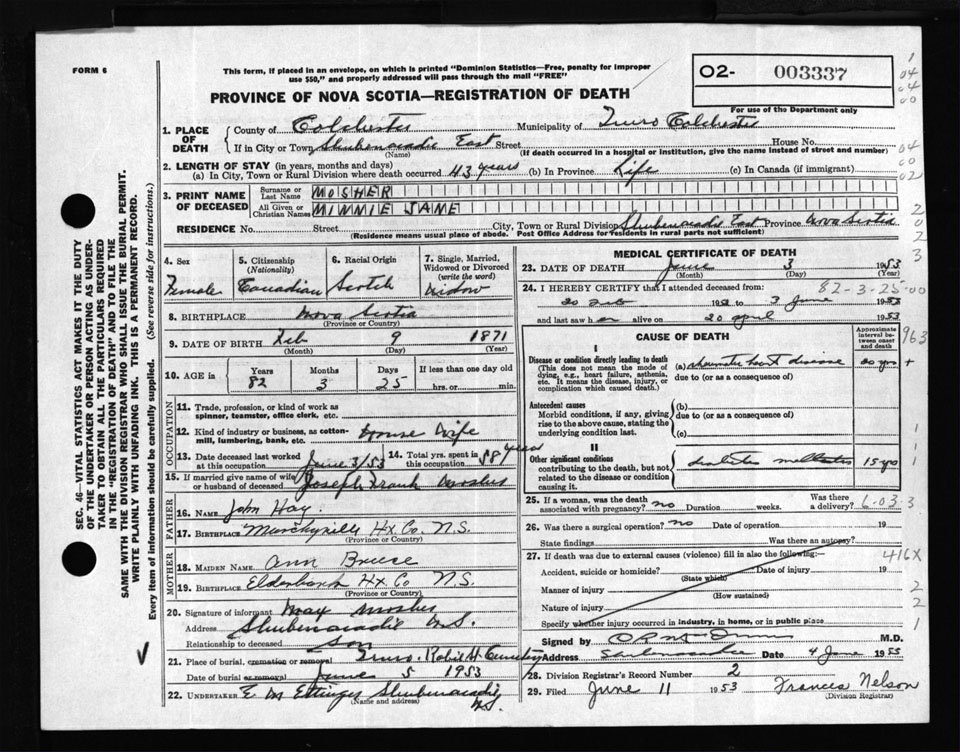 FORM 6
This form, if placed in an envelope, on which is printed "Dominion Statistics—Free, penalty for improper
use $50," and properly addressed will pass through the mail "FREE"
O2- 003337
For use of the Department only
PROVINCE OF NOVA SCOTIA—REGISTRATION OF DEATH
1
04
04
00
04
00
02
2
0
2
3
1. PLACE OF DEATH { County of Colchester Municipality of Truro Colchester
If in City or Town Shubenacadie East Street House No.
(Name) (If death occurred in a hospital or institution, give the name instead of street and number)
2. LENGTH OF STAY (in years, months and days)
(a) In City, Town or Rural Division where death occurred 43 years (b) In Province Life (c) In Canada (if immigrant)
3. PRINT NAME OF DECEASED { Surname or Last Name MOSHER
All Given or Christian Names MINNIE JANE
RESIDENCE No. Street City, Town or Rural Division Shubenacadie East Province Nova Scotia
(Residence means usual place of abode. Post Office Address for residents in rural parts not sufficient)
4. Sex Female
5. Citizenship (Nationality) Canadian
6. Racial Origin Scotch
7. Single, Married, Widowed or Divorced (write the word) Widow
8. BIRTHPLACE Nova Scotia
(Province or Country)
9. DATE OF BIRTH Feb 9 1871
(Month) (Day) (Year)
10. AGE in Years 82 Months 3 Days 25 If less than one day old hrs. or min.
OCCUPATION
11. Trade, profession, or kind of work as spinner, teamster, office clerk, etc.
12. Kind of industry or business, as cotton-mill, lumbering, bank, etc. House Wife
13. Date deceased last worked at this occupation June 3/53 14. Total yrs. spent in this occupation 58 years
15. If married give name of wife or husband of deceased Joseph Frank Mosher
FATHER
16. NAME John Hay
17. BIRTHPLACE Hx Co. N.S.
(Province or Country)
MOTHER
18. MAIDEN NAME Ann
19. BIRTHPLACE Elderbank Hx Co N.S.
(Province or Country)
20. Signature of informant May Mosher
Address Shubenacadie N.S.
Relationship to deceased Son
21. Place of burial, cremation or removal Truro, Robie St Cemetery
Date of burial or removal June 5 1953
22. UNDERTAKER E M Ettinger Shubenacadie N.S.
(Name and address)
MEDICAL CERTIFICATE OF DEATH
23. DATE OF DEATH June 3 1953
(Month) (Day) (Year)
24. I HEREBY CERTIFY that I attended deceased from: 82-3-25-00
20 Feb 195 to 3 June 1953
and last saw her alive on 20 April 1953
CAUSE OF DEATH
Approximate interval between onset and death
963
+
I
Disease or condition directly leading to death
(This does not mean the mode of dying, e.g., heart failure, asthenia, etc. It means the disease, injury, or complication which caused death.)
(a) rheumatic heart disease 20 yrs
due to (or as a consequence of)
Antecedent causes
Morbid conditions, if any, giving rise to the above cause, stating the underlying condition last.
(b)
due to (or as a consequence of)
(c)
1
II
Other significant conditions
contributing to the death, but not related to the disease or condition causing it.
diabetes mellitus 15 yrs
1
25. If a woman, was the death associated with pregnancy? no Duration weeks. Was there a delivery? 6-03-3
26. Was there a surgical operation? no Date of operation 19
State findings Was there an autopsy?
27. If death was due to external causes (violence) fill in also the following:— 416X
Accident, suicide or homicide? Date of injury 19
(State which)
Manner of injury 2
(How sustained)
Nature of injury 2
Specify whether injury occurred in industry, in home, or in public place 1
Signed by M.D.
Address Shubenacadie Date 4 June 1955
28. Division Registrar's Record Number 2
29. Filed June 11 1953 Frances Nelson
(Division Registrar)
SEC. 46—VITAL STATISTICS ACT MAKES IT THE DUTY
OF THE UNDERTAKER OR PERSON ACTING AS UNDER-
TAKER TO OBTAIN ALL THE PARTICULARS REQUIRED
IN THE "REGISTRATION OF DEATH" AND TO FILE THE
SAME WITH THE DIVISION REGISTRAR WHO SHALL ISSUE THE BURIAL PERMIT.
WRITE PLAINLY WITH UNFADING INK. THIS IS A PERMANENT RECORD.
Every item of information should be carefully supplied. (See reverse side for instructions.)